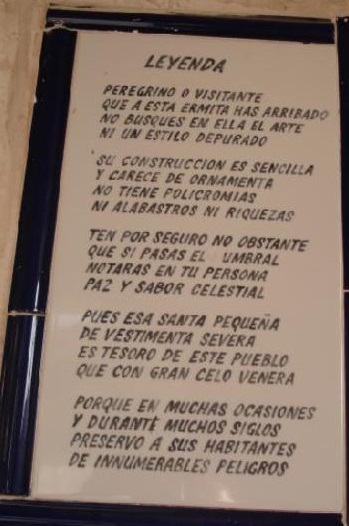 LEYENDA
PEREGRINO O VISITANTE
QUE A ESTA ERMITA HAS ARRIBADO
NO BUSQUES EN ELLA EL ARTE
NI UN ESTILO DEPURADO
SU CONSTRUCCION ES SENCILLA
Y CARECE DE ORNAMENTA
NO TIENE POLICROMIAS
NI ALABASTROS NI RIQUEZAS
TEN POR SEGURO NO OBSTANTE
QUE SI PASAS EL UMBRAL
NOTARAS EN TU PERSONA
PAZ Y SABOR CELESTIAL
PUES ESA SANTA PEQUEÑA
DE VESTIMENTA SEVERA
ES TESORO DE ESTE PUEBLO
QUE CON GRAN CELO VENERA
PORQUE EN MUCHAS OCASIONES
Y DURANTE MUCHOS SIGLOS
PRESERVO A SUS HABITANTES
DE INNUMERABLES PELIGROS